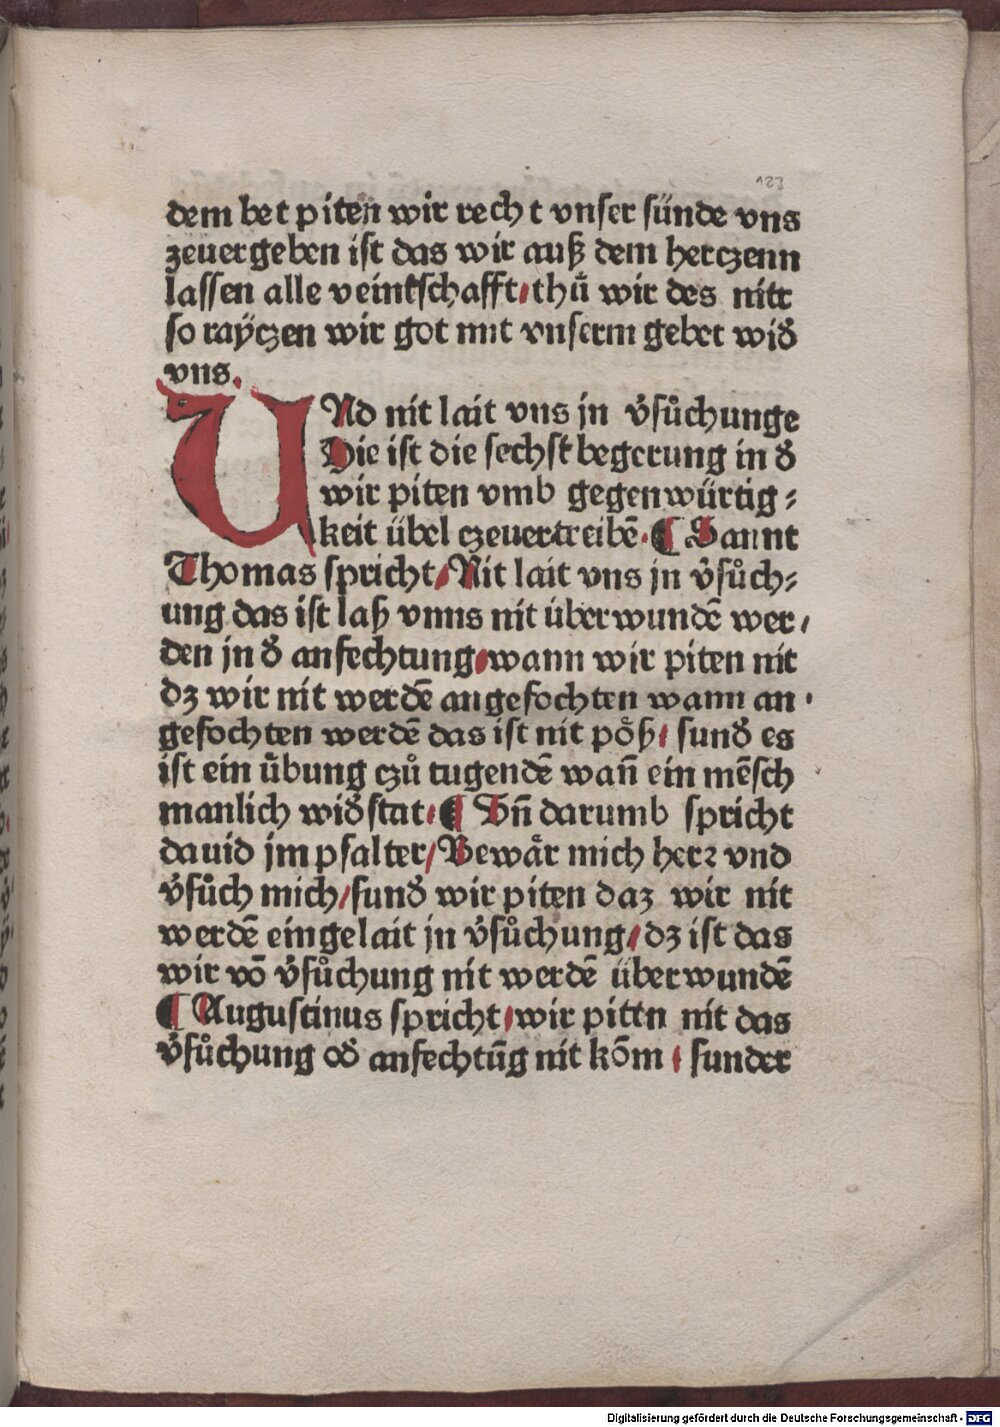 123
dem bet piten wir recht vnser sünde vns
zeuergeben ist das wir auß dem herczenn
lassen alle veintschafft / thů wir des nitt
so rayczen wir got mit vnserm gebet wid̕
vns.
UNd nit lait vns jn v̕sůchunge
Die ist die sechst begerung in d̕
wir piten vmb gegenwürtig⸗
keit übel czeuertreibē. ¶ Sannt
Thomas spricht / Nit lait vns jn v̕sůch⸗
ung das ist laß vnns nit überwundē wer⸗
den jn d̕ anfechtung / wann wir piten nit
dz wir nit werdē angefochten wann an⸗
gefochten werdē das ist nit pöß / sund̕ es
ist ein übung czů tugendē wañ ein mēsch
manlich wid̕stat. ¶ Vñ darumb spricht
dauid jm psalter / Bewär mich herꝛ vnd
v̕sůch mich / sund̕ wir piten daz wir nit
werdē eingelait jn v̕sůchung / dz ist das
wir vō v̕sůchung nit werdē überwundē
¶ Augustinus spricht / wir pittn nit das
v̕sůchung od̕ anfechtūg nit kōm / sunder
Digitalisierung gefördert durch die Deutsche Forschungsgemeinschaft - DFG